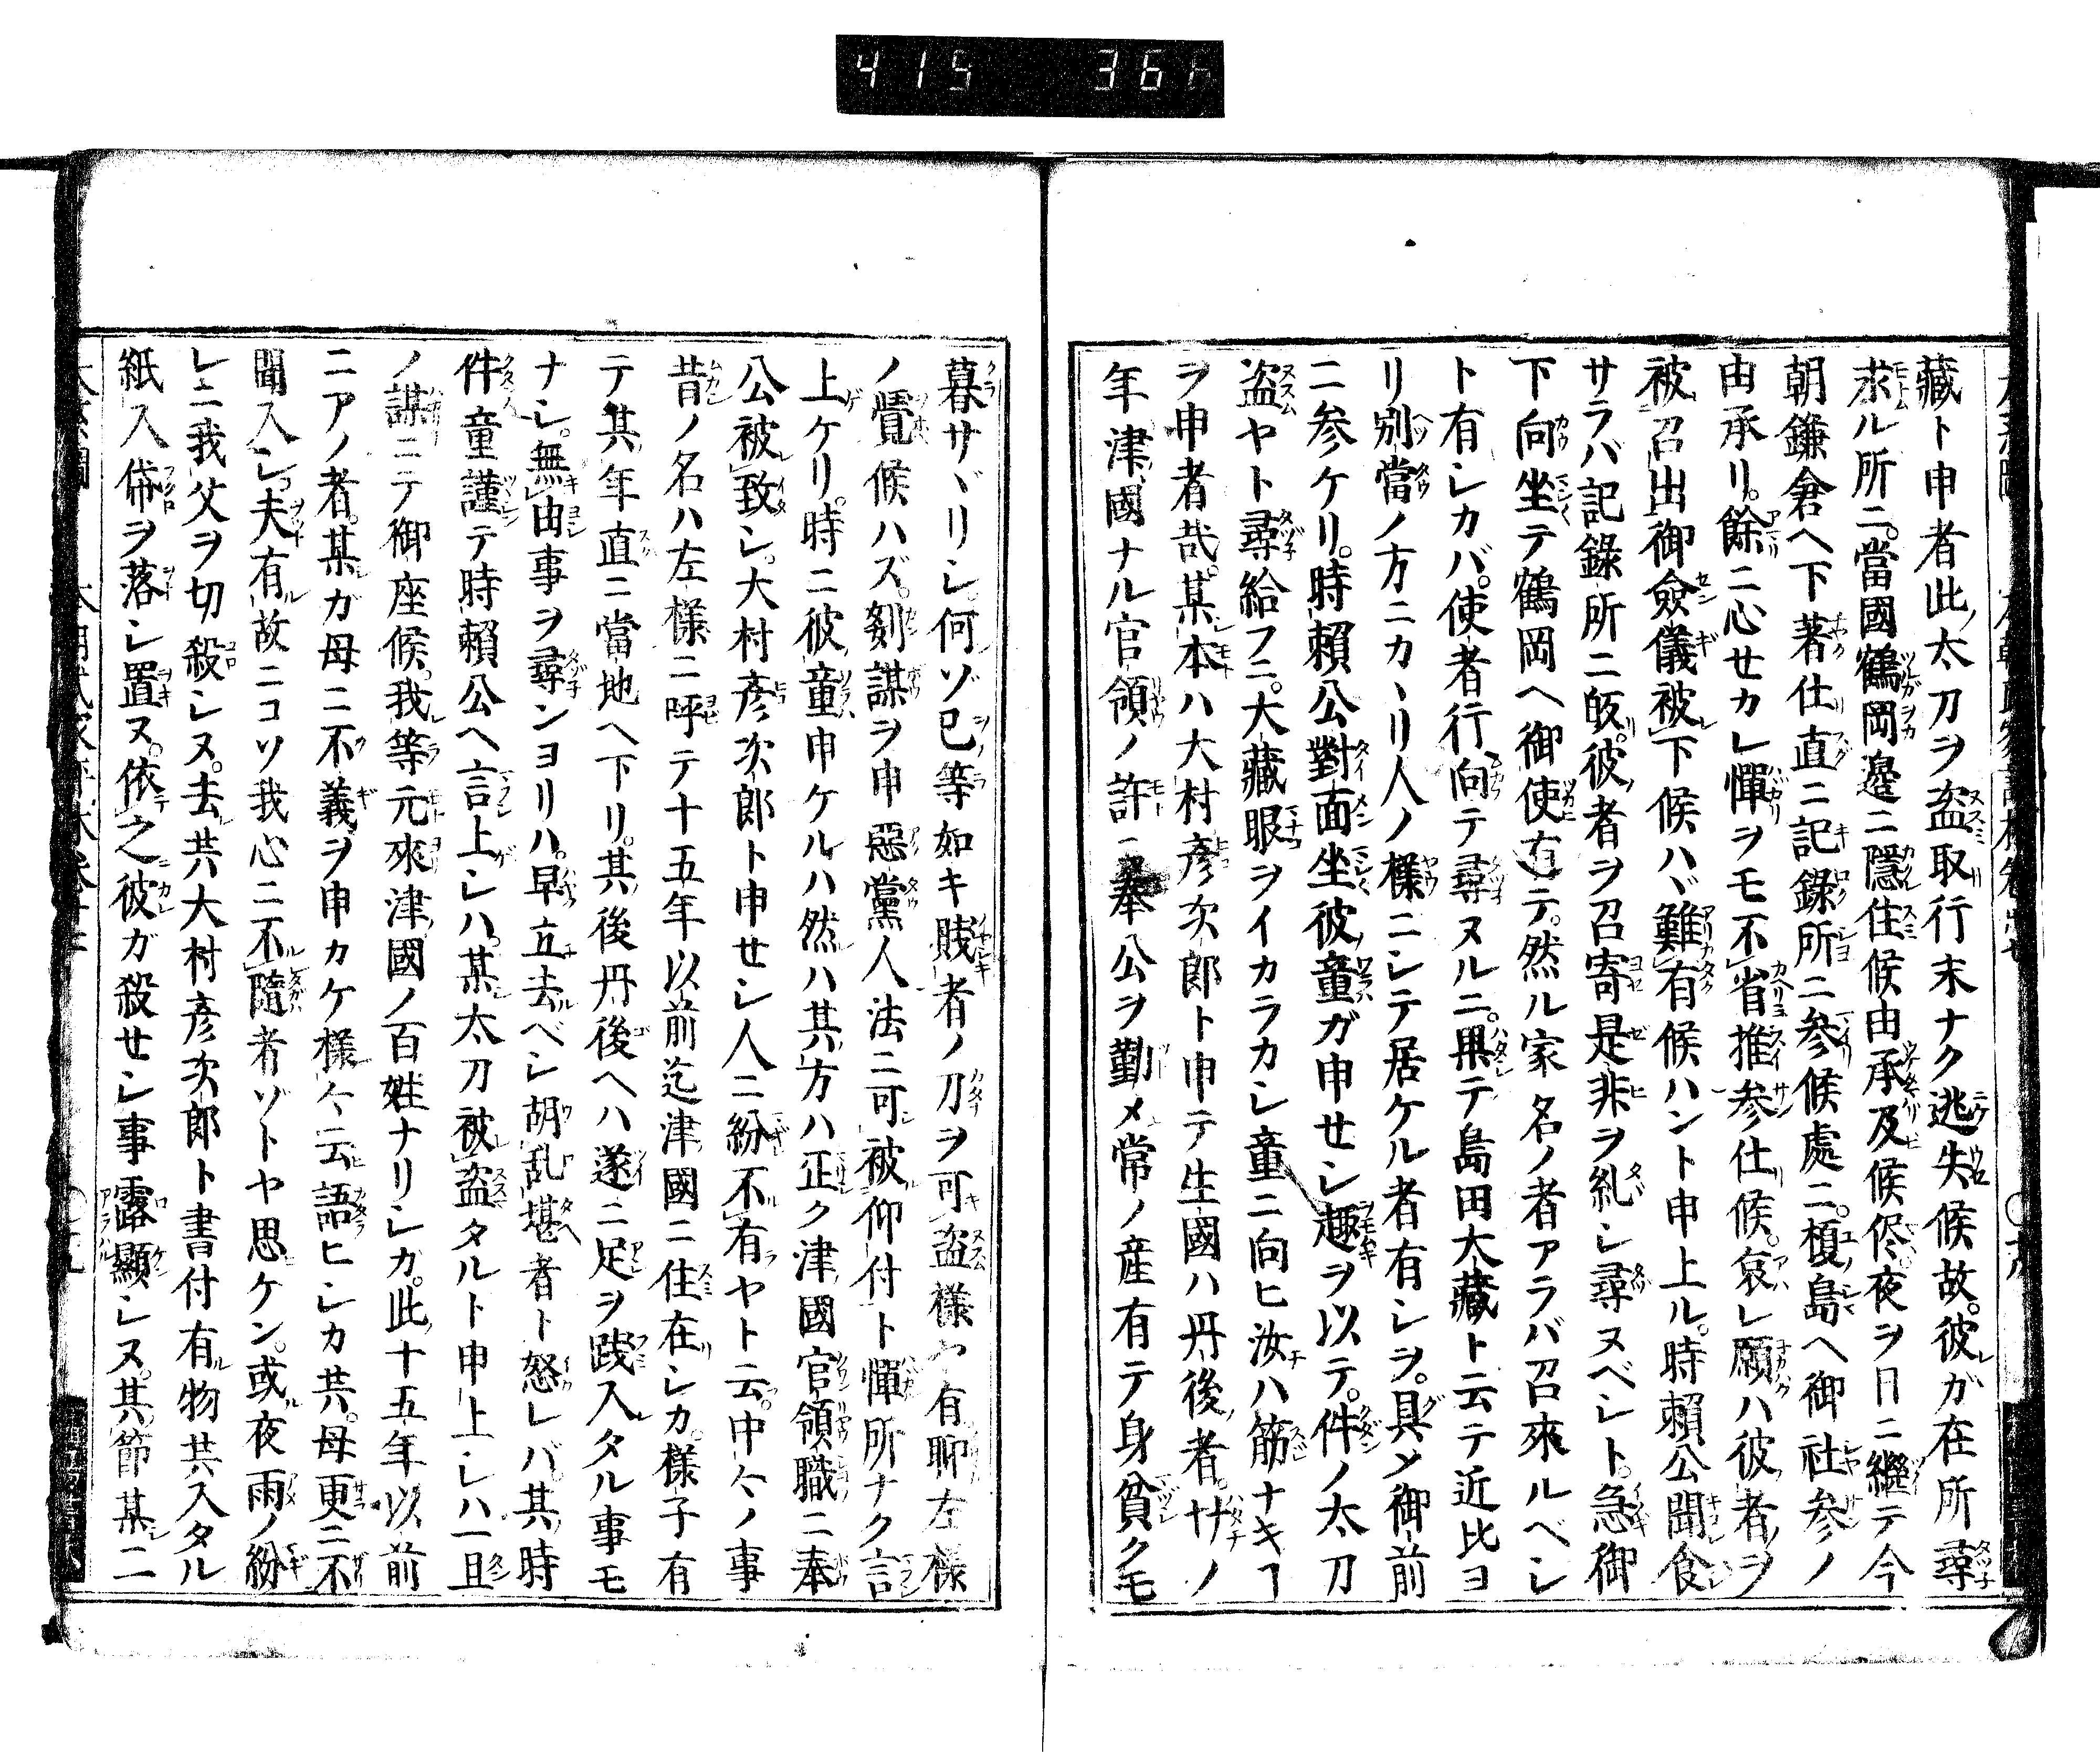 415 366
藏ト申者此太刀ヲ盗取行末ナク逃失候故彼ガ在所尋
求ル所ニ當國鶴岡邊ニ隱住候由承及候侭夜ヲ日ニ繼テ今
朝鎌倉ヘ下著仕直ニ記錄所ニ参候處ニ榎島ヘ御社参ノ
由承リ餘ニ心セカレ憚ヲモ不省推参仕候哀レ願ハ彼者ヲ
被召出御僉儀被下候ハヾ難有候ハント申上ル時賴公聞食
サラバ記錄所ニ皈彼者ヲ召寄是非ヲ糺シ尋ヌベシト急御
下向坐テ鶴岡ヘ御使有テ然ル家名ノ者アラバ召來ルベシ
ト有シカバ使者行向テ尋ヌルニ果テ島田大藏ト云テ近比ヨ
リ別當ノ方ニカヽリ人ノ樣ニシテ居ケル者有シヲ具メ御前
ニ参ケリ時賴公對面坐彼童ガ申セシ趣ヲ以テ件ノ太刀
盗ヤト尋給フニ大藏眼ヲイカラカシ童ニ向ヒ汝ハ筋ナキヿ
ヲ申者哉某本ハ大村彦次郎ト申テ生國ハ丹後者廿ノ
年津國ナル官領ノ許ニ奉公ヲ勤メ常ノ産有テ身貧クモ
暮サヾリシ何ゾ己等如キ賎者ノ刀ヲ可盗樣ヤ有聊左樣
ノ覺候ハズ剱謀ヲ申惡黨人法ニ可被仰付ト憚所ナク言
上ケリ時ニ彼童申ケルハ然ハ其方ハ正ク津國官領職ニ奉
公被致シ大村彦次郎ト申セシ人ニ紛不有ヤト云中々ノ事
昔ノ名ハ左樣ニ呼テ十五年以前迄津國ニ住在シカ樣子有
テ其年直ニ當地ヘ下リ其後丹後ヘハ遂ニ足ヲ踐入タル事モ
ナシ無由事ヲ尋ンヨリハ早立去ベシ胡乱堪者ト怒レバ其時
件童謹テ時賴公ヘ言上シハ某太刀被盗タルト申上シハ一旦
ノ謀ニテ御座候我等元來津國ノ百姓ナリシカ此十五年以前
ニアノ者某ガ母ニ不義ヲ申カケ樣々云語ヒシカ共母更ニ不
聞入シ夫有故ニコソ我心ニ不隨者ゾトヤ思ケン或夜雨ノ紛
レニ我父ヲ切殺シヌ去共大村彦次郎ト書付有物共入タル
紙入帒ヲ落シ置ヌ依之彼ガ殺セシ事露顯シヌ其節某二